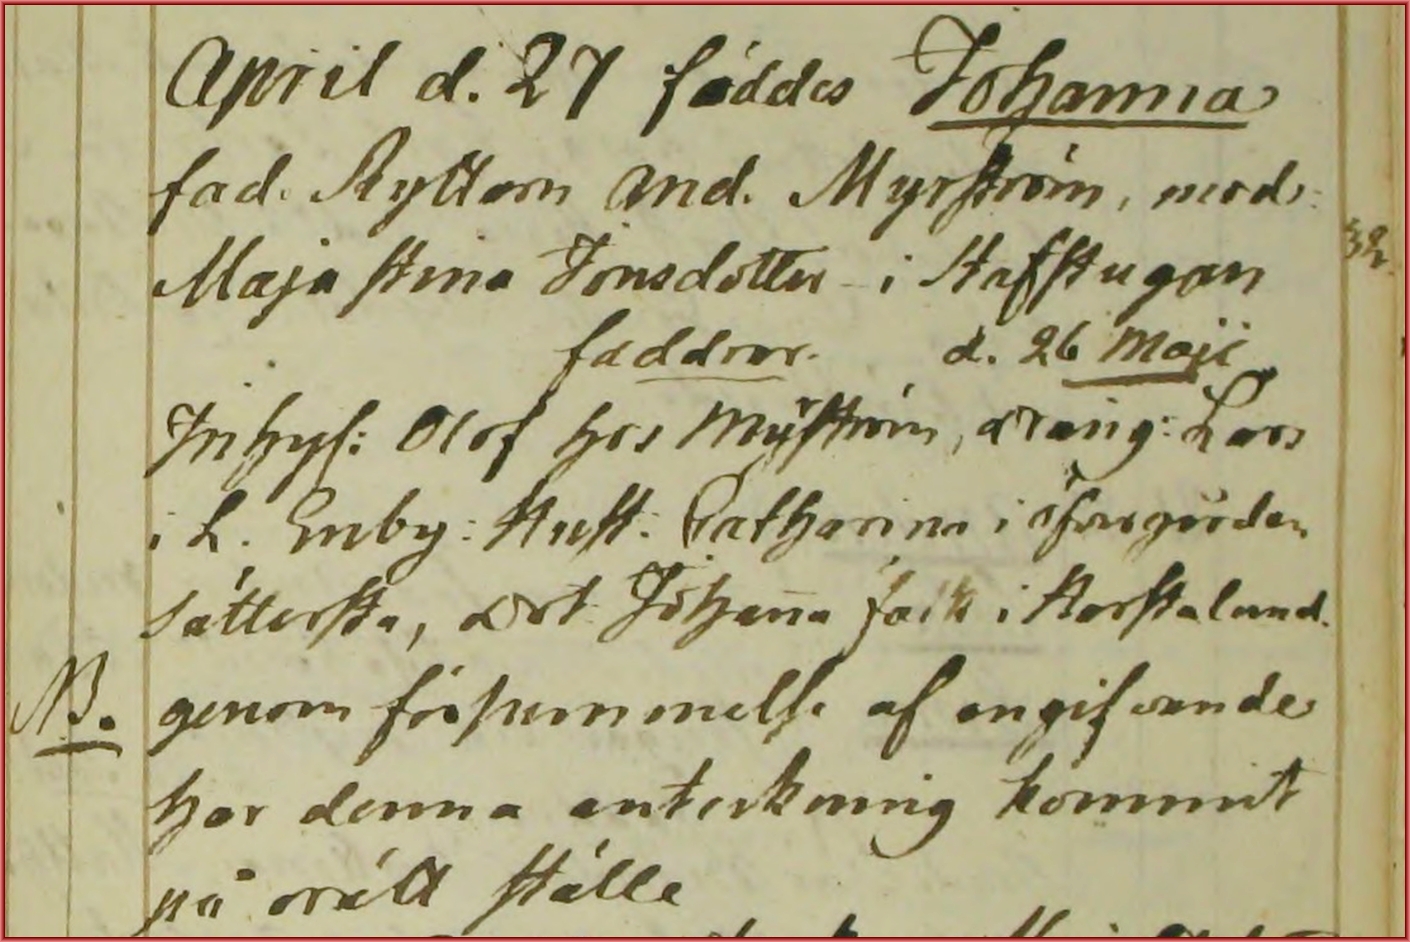 April d. 27 föddes Johanna
fad. Ryttarn And. Myrström, mod:
Maja Stina Jonsdotter i Stafstugan
32
faddrar. d. 26 Maji
Inhys: Olof hos Myrström, dräng: Lars
i L. Enby: Hust: Catharina i
Sättersta, Jöhanna i
NB. genom försummelse af angifvande
har denna anteckning kommit
på orätt ställe